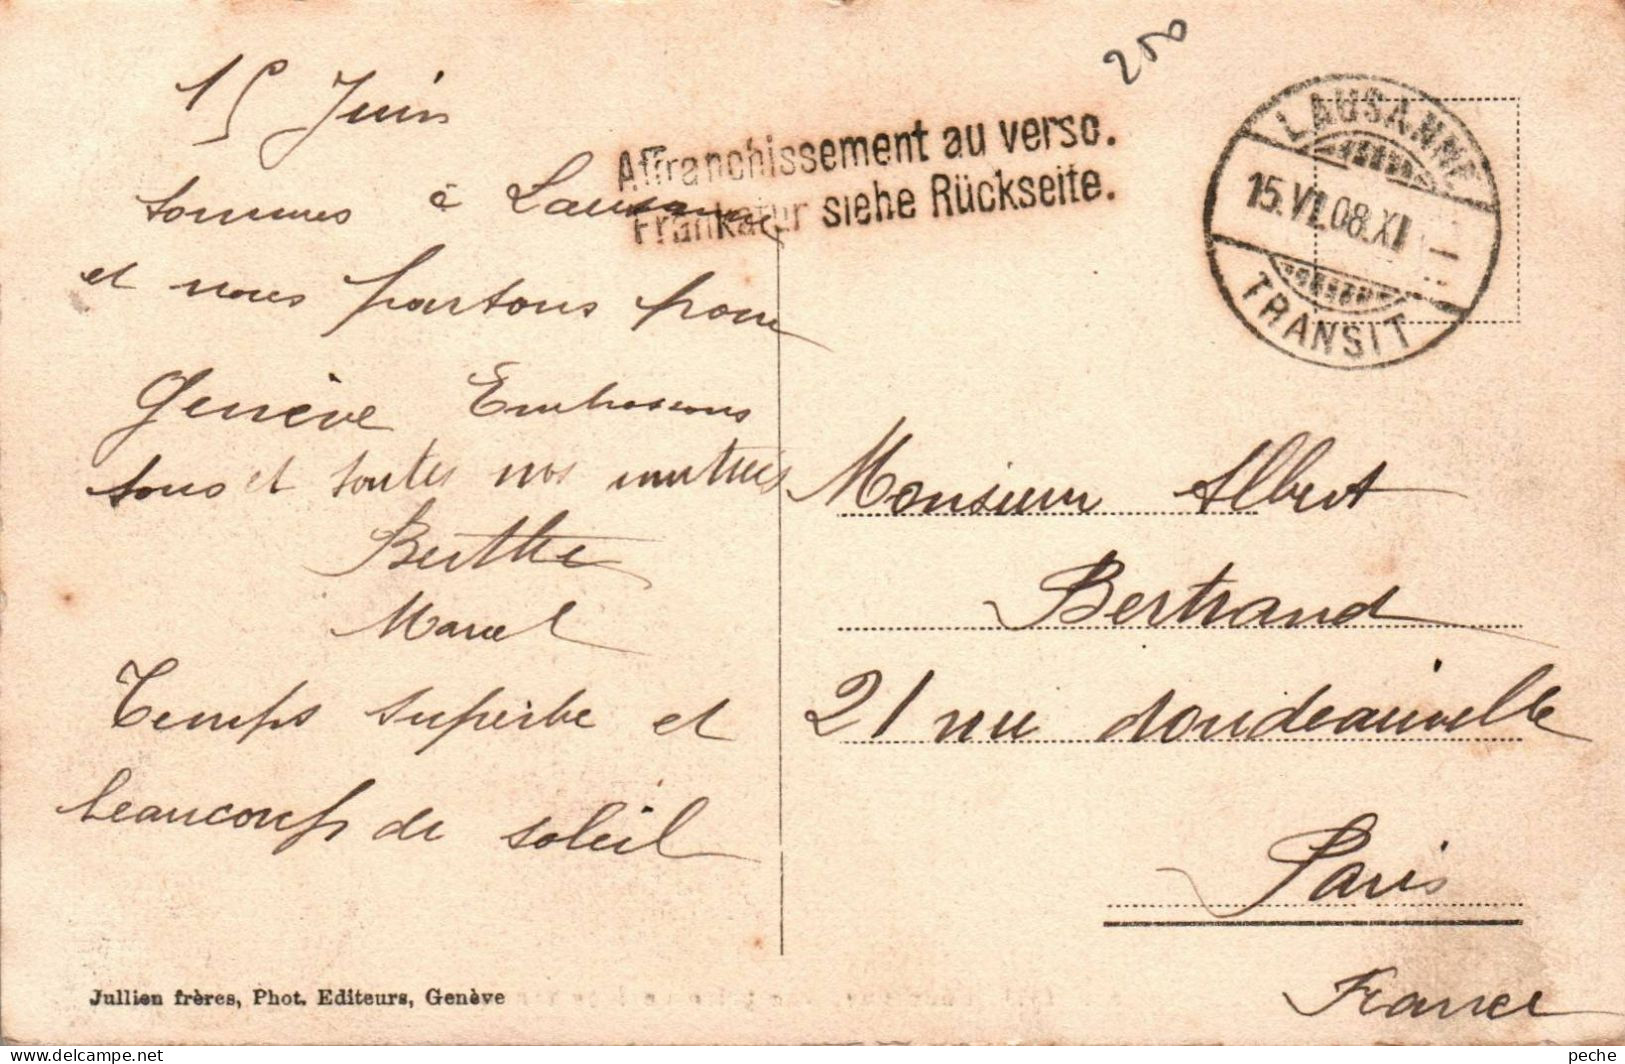 250
15 Juin
sommes à Lausanne
et nous partons pour
Genève Embrassons
tous et toutes nos
Berthe
Marcel
Temps superbe et
beaucoup de soleil
Jullien frères, Phot. Editeurs, Genève
Affranchissement au verso.
Frankatur siehe Rückseite.
LAUSANNE
15.VI.08.XI
TRANSIT
Monsieur Albert
Bertrand
21 rue doudeauville
Paris
France
peche